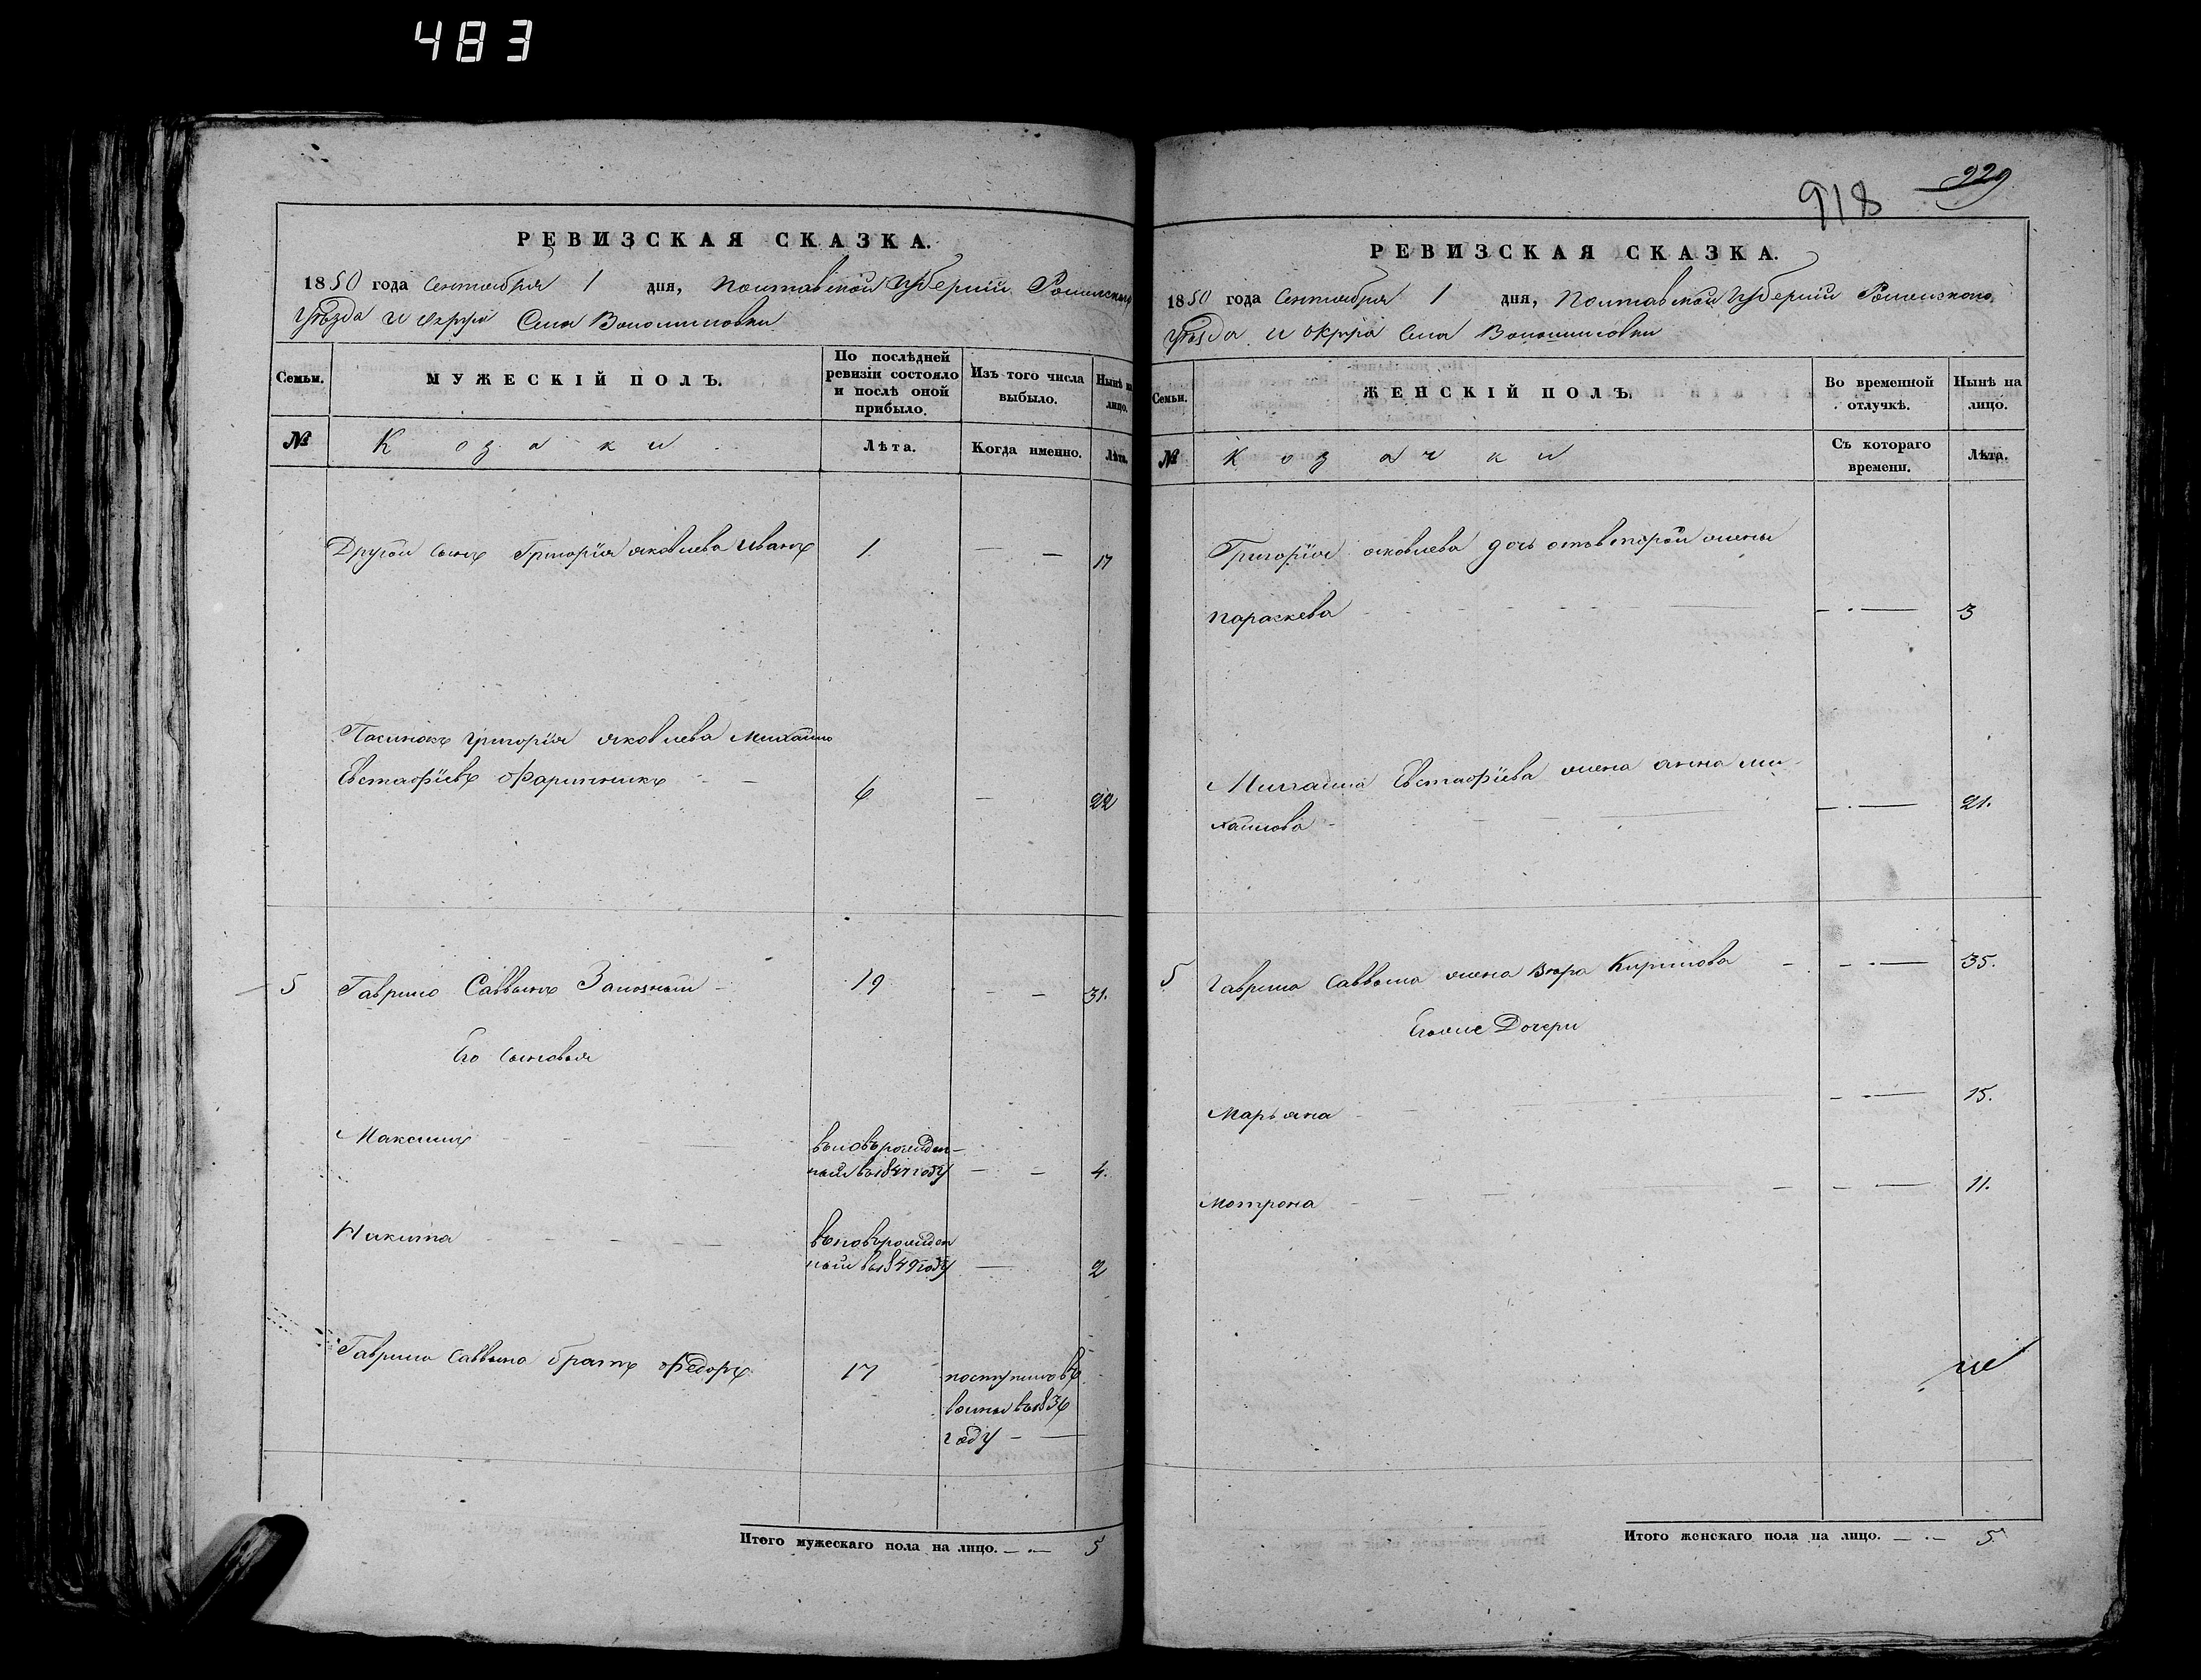 483
РЕВИЗСКАЯ СКАЗКА.
1850 года Сентября 1 дня, Полтавской Губерніи Роменского
Уѣзда и округа Села Волошиновки
Семьи.
МУЖЕСКІЙ ПОЛЪ.
По послѣдней ревизіи состояло и послѣ оной прибыло.
Изъ того числа выбыло.
Нынѣ на лицо.
№
Козаки
Лѣта.
Когда именно.
Лѣта.
Другой сынъ Григорія Яковлева Иванъ 1 — — 17
Пасинокъ Григорія Яковлева Михайло
Евстафіевъ — — 6 — 22
5 Гаврило Саввинъ 19 — — 31.
Его сыновья
Максимъ — — вновърожден-
ный въ 1847 году — — 4.
Никита — — вновърожден
ный въ 1849 году — 2
Гаврила Саввина братъ Федоръ 17 поступилъ въ
въ 1836
году — —
Итого мужескаго пола на лицо. — · — 5
918 929
РЕВИЗСКАЯ СКАЗКА.
1850 года Сентября 1 дня, Полтавской Губерніи Роменского
Уѣзда и округа Села Волошиновки
Семьи.
ЖЕНСКІЙ ПОЛЪ.
Во временной отлучкѣ.
Нынѣ на лицо.
№
Козачки
Съ котораго времени.
Лѣта.
Григорія Яковлева дочь отъ второй жены
Параскева — — 3
Михайла Евстафіева жена Анна Ми-
хайлова — — 21.
5 Гаврила Саввина жена Вѣра Кирилова — — 35.
Егоже Дочери
Марьяна — — 15.
Мотрона — — 11.
Итого женскаго пола на лицо. — · — 5.